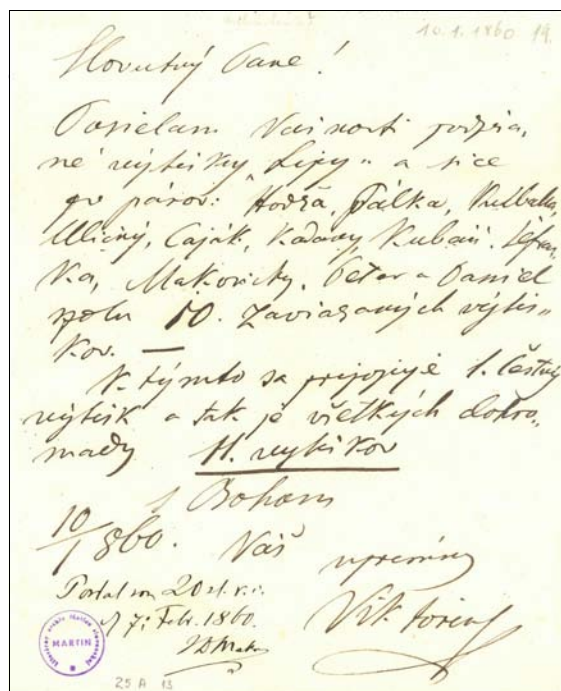 10.1.1860 19.
Slovutný Pane!
Posielam Vašnosti podpísa„
né výtisky „Lipy„ a sice
pre pánov: Hodža, Pálka,
Uličný, Čaják, Kadavy, Kubáni.
ka, Makovický, Peter a Daniel
spolu 10. zaviazaných výtis„
kov. —
K týmto sa pripojuje 1. čestný
výtisk a tak je všetkých dohro„
mady 11. výtiskov
s Bohom
10/1 860. Váš úprimný
Viktorin
Poslal som 20 zl. r. č.
d 7: Febr. 1860.
MARTIN
25 A 13